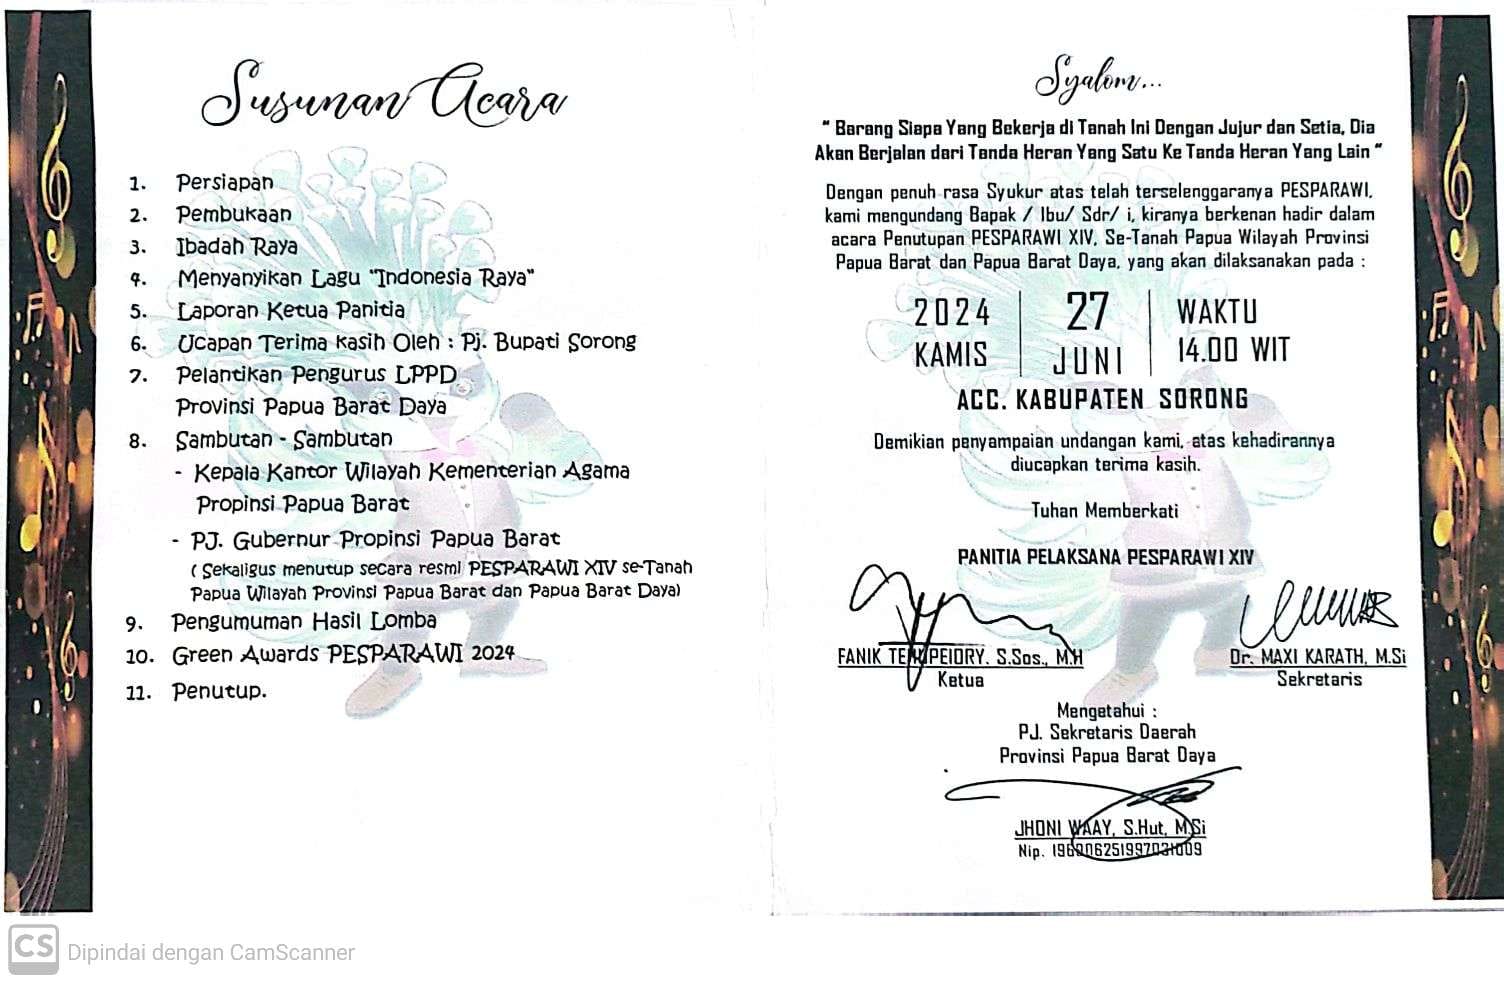 Susunan Acara
1. Persiapan
2. Pembukaan
3. Ibadah Raya
4. Menyanyikan Lagu "Indonesia Raya"
5. Laporan Ketua Panitia
6. Ucapan Terima kasih Oleh : Pj. Bupati Sorong
7. Pelantikan Pengurus LPPD
Provinsi Papua Barat Daya
8. Sambutan - Sambutan
- Kepala Kantor Wilayah Kementerian Agama
Propinsi Papua Barat
- PJ. Gubernur Propinsi Papua Barat
( Sekaligus menutup secara resmi PESPARAWI XIV se-Tanah
Papua Wilayah Provinsi Papua Barat dan Papua Barat Daya)
9. Pengumuman Hasil Lomba
10. Green Awards PESPARAWI 2024
11. Penutup.
Syalom...
" Barang Siapa Yang Bekerja di Tanah Ini Dengan Jujur dan Setia, Dia
Akan Berjalan dari Tanda Heran Yang Satu Ke Tanda Heran Yang Lain "
Dengan penuh rasa Syukur atas telah terselenggaranya PESPARAWI,
kami mengundang Bapak / Ibu/ Sdr/ i, kiranya berkenan hadir dalam
acara Penutupan PESPARAWI XIV, Se-Tanah Papua Wilayah Provinsi
Papua Barat dan Papua Barat Daya, yang akan dilaksanakan pada :
2024 27 WAKTU
KAMIS JUNI 14.00 WIT
ACC. KABUPATEN SORONG
Demikian penyampaian undangan kami, atas kehadirannya
diucapkan terima kasih.
Tuhan Memberkati
PANITIA PELAKSANA PESPARAWI XIV
FANIK S.Sos., M.H Dr. MAXI KARATH, M.Si
Ketua Sekretaris
Mengetahui :
PJ. Sekretaris Daerah
Provinsi Papua Barat Daya
JHONI WAAY, S.Hut, M.Si
Nip.
CS Dipindai dengan CamScanner